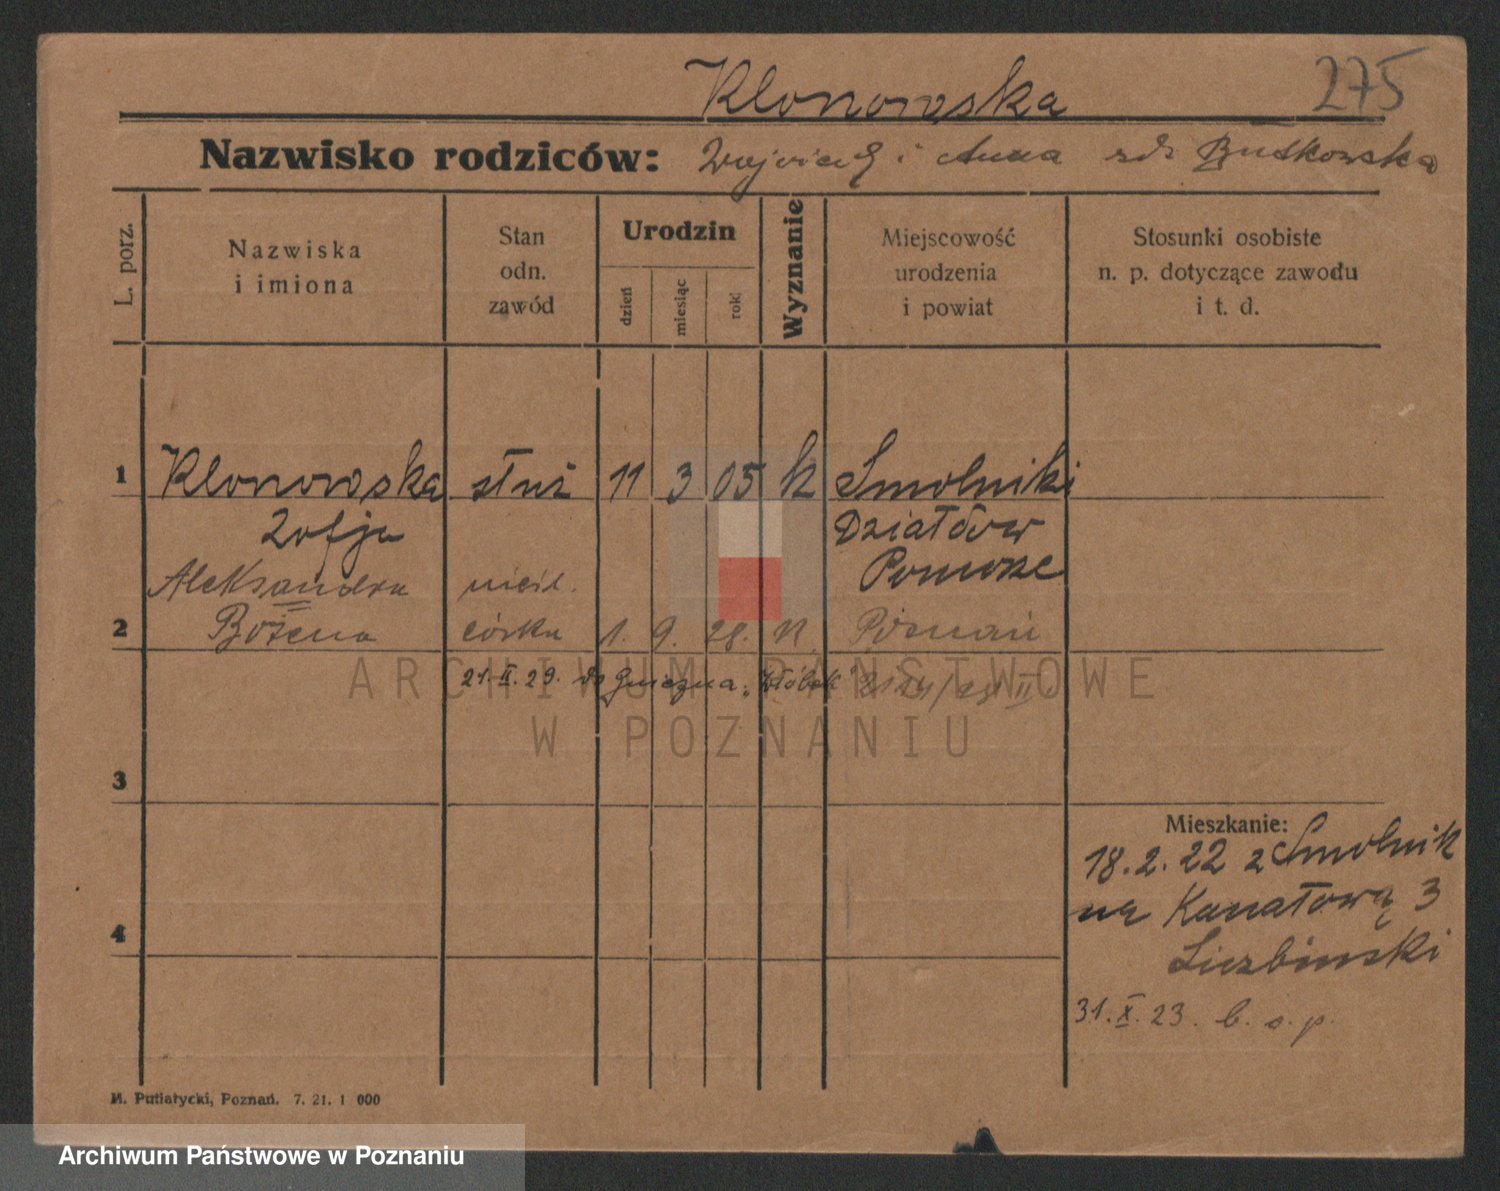 Klonowska 275
Nazwisko rodziców: Wojciech i Anna zd. Butkowska
L. porz.
Nazwiska
i imiona
Stan
odn.
zawód
Urodzin
dzień
miesiąc
rok
Wyznanie
Miejscowość
urodzenia
i powiat
Stosunki osobiste
n. p. dotyczące zawodu
i t. d.
1 Klonowska służ 11 3 05 k Smolniki
Zofja Działdow
Pomorze
Aleksandra nieśl.
2 Bożena córka 1. 9. 28. Poznań
21.II.29. do Gniezna „Żłóbek"
ARCHIWUM PAŃSTWOWE
W POZNANIU
3
Mieszkanie:
18.2.22 z Smolnik
na Kanałową 3
4
Liczbinski
31.X.23. b. s. p.
M. Putiatycki, Poznań. 7. 21. 1 000
Archiwum Państwowe w Poznaniu